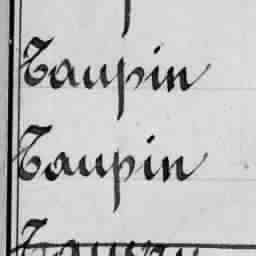 Taupin
Taupin